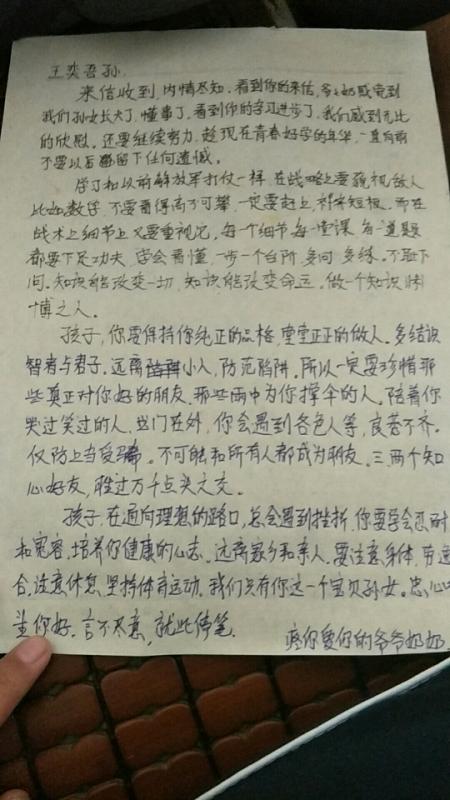 王奕吾孙
来信收到，内情尽知。看到你的来信，爷々奶感觉到
我们孙女长大了，懂事了，看到你的学习进步了，我们感到无比
的欣慰。还要继续努力，趁现在青春好学的年华，一直向前
不要以后留下任何遗憾。
学习和以前解放军打仗一样，在战略上要藐视敌人
比如数学，不要看得高不可攀，一定要赶上，补齐短板。而在
战术上细节上又要重视它，每一个细节每一堂课，每一道题
都要下足功夫，学会看懂，一步一个台阶，多问多练，不耻下
问。知识能改变一切，知识能改变命运。做一个知识渊
博之人。
孩子，你要保持你纯正的品格，堂堂正正的做人。多结识
智者与君子。远离小人，防范陷阱。所以一定要珍惜那
些真正对你好的朋友，那些雨中为你撑伞的人。陪着你
哭过笑过的人，出门在外，你会遇到各色人等，良莠不齐。
仅防上当受骗。不可能和所有人都成为朋友。三两个知
心好友，胜过万千点头之交。
孩子，在通向理想的路口，总会遇到挫折，你要学会忍耐
和宽容，培养你健康的心志。远离家乡和亲人，要注意身体，劳逸
合，注意休息，坚持体育运动。我们只有你这一个宝贝孙女。忠心
你好。言不尽意，就此停笔。
疼你爱你的爷爷奶奶